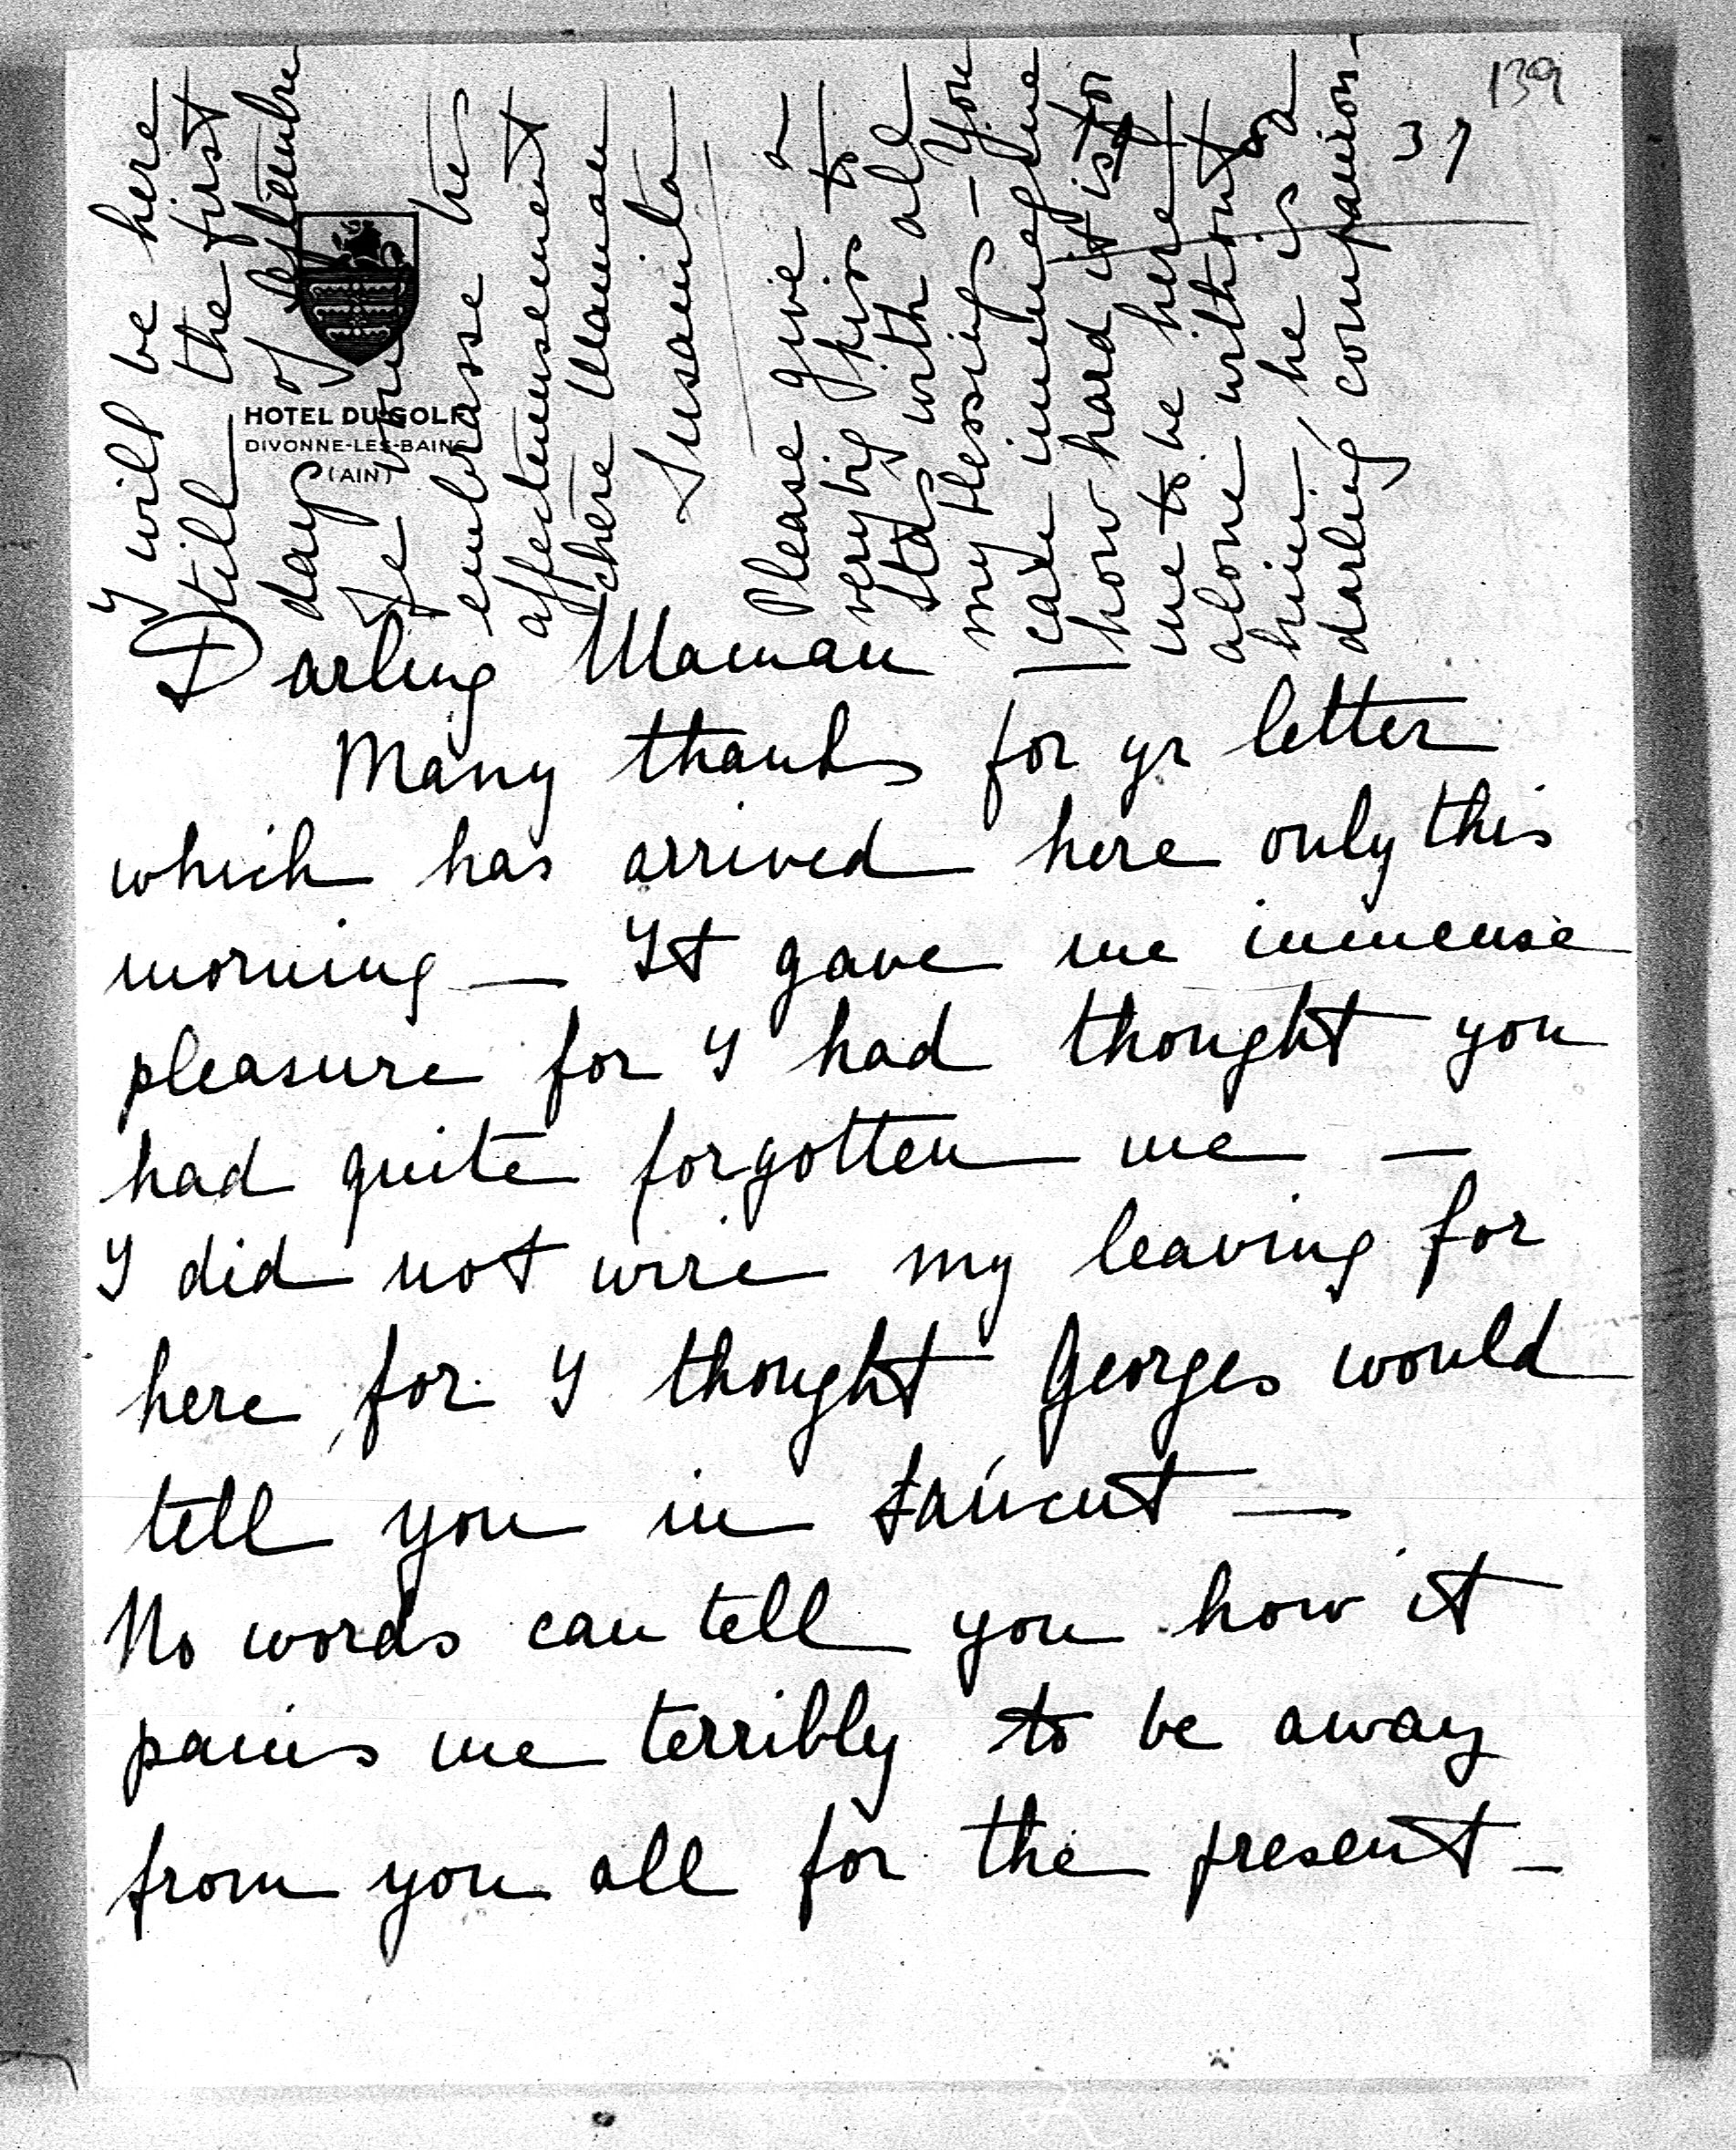 139
37
HOTEL DU GOLF
DIVONNE-LES-BAINS
(AIN)
Darling Maman —
Many thanks for yr letter
which has arrived here only this
morning — It gave me immense
pleasure for I had thought you
had quite forgotten me —
I did not wire my leaving for
here for I thought Georges would
tell you in
No words can tell you how it
pains me terribly to be away
from you all for the present —
I will be here
till the first
day of Septembre
Je vous
embrasse tres
affectueusement
chère Maman
Susanita
Please give a
very big kiss to
Stas with all
my blessing — You
can immagine
how hard it is for
me to be here
alone without
him, he is a
darling companion —